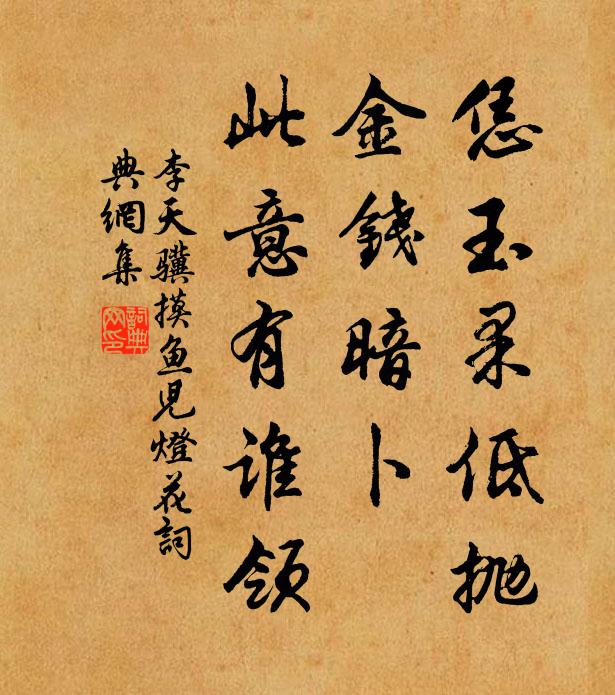 恁玉果低抛
金錢暗卜
此意有谁领
李天驥摸鱼儿燈花詞
典網集
詞典
网印